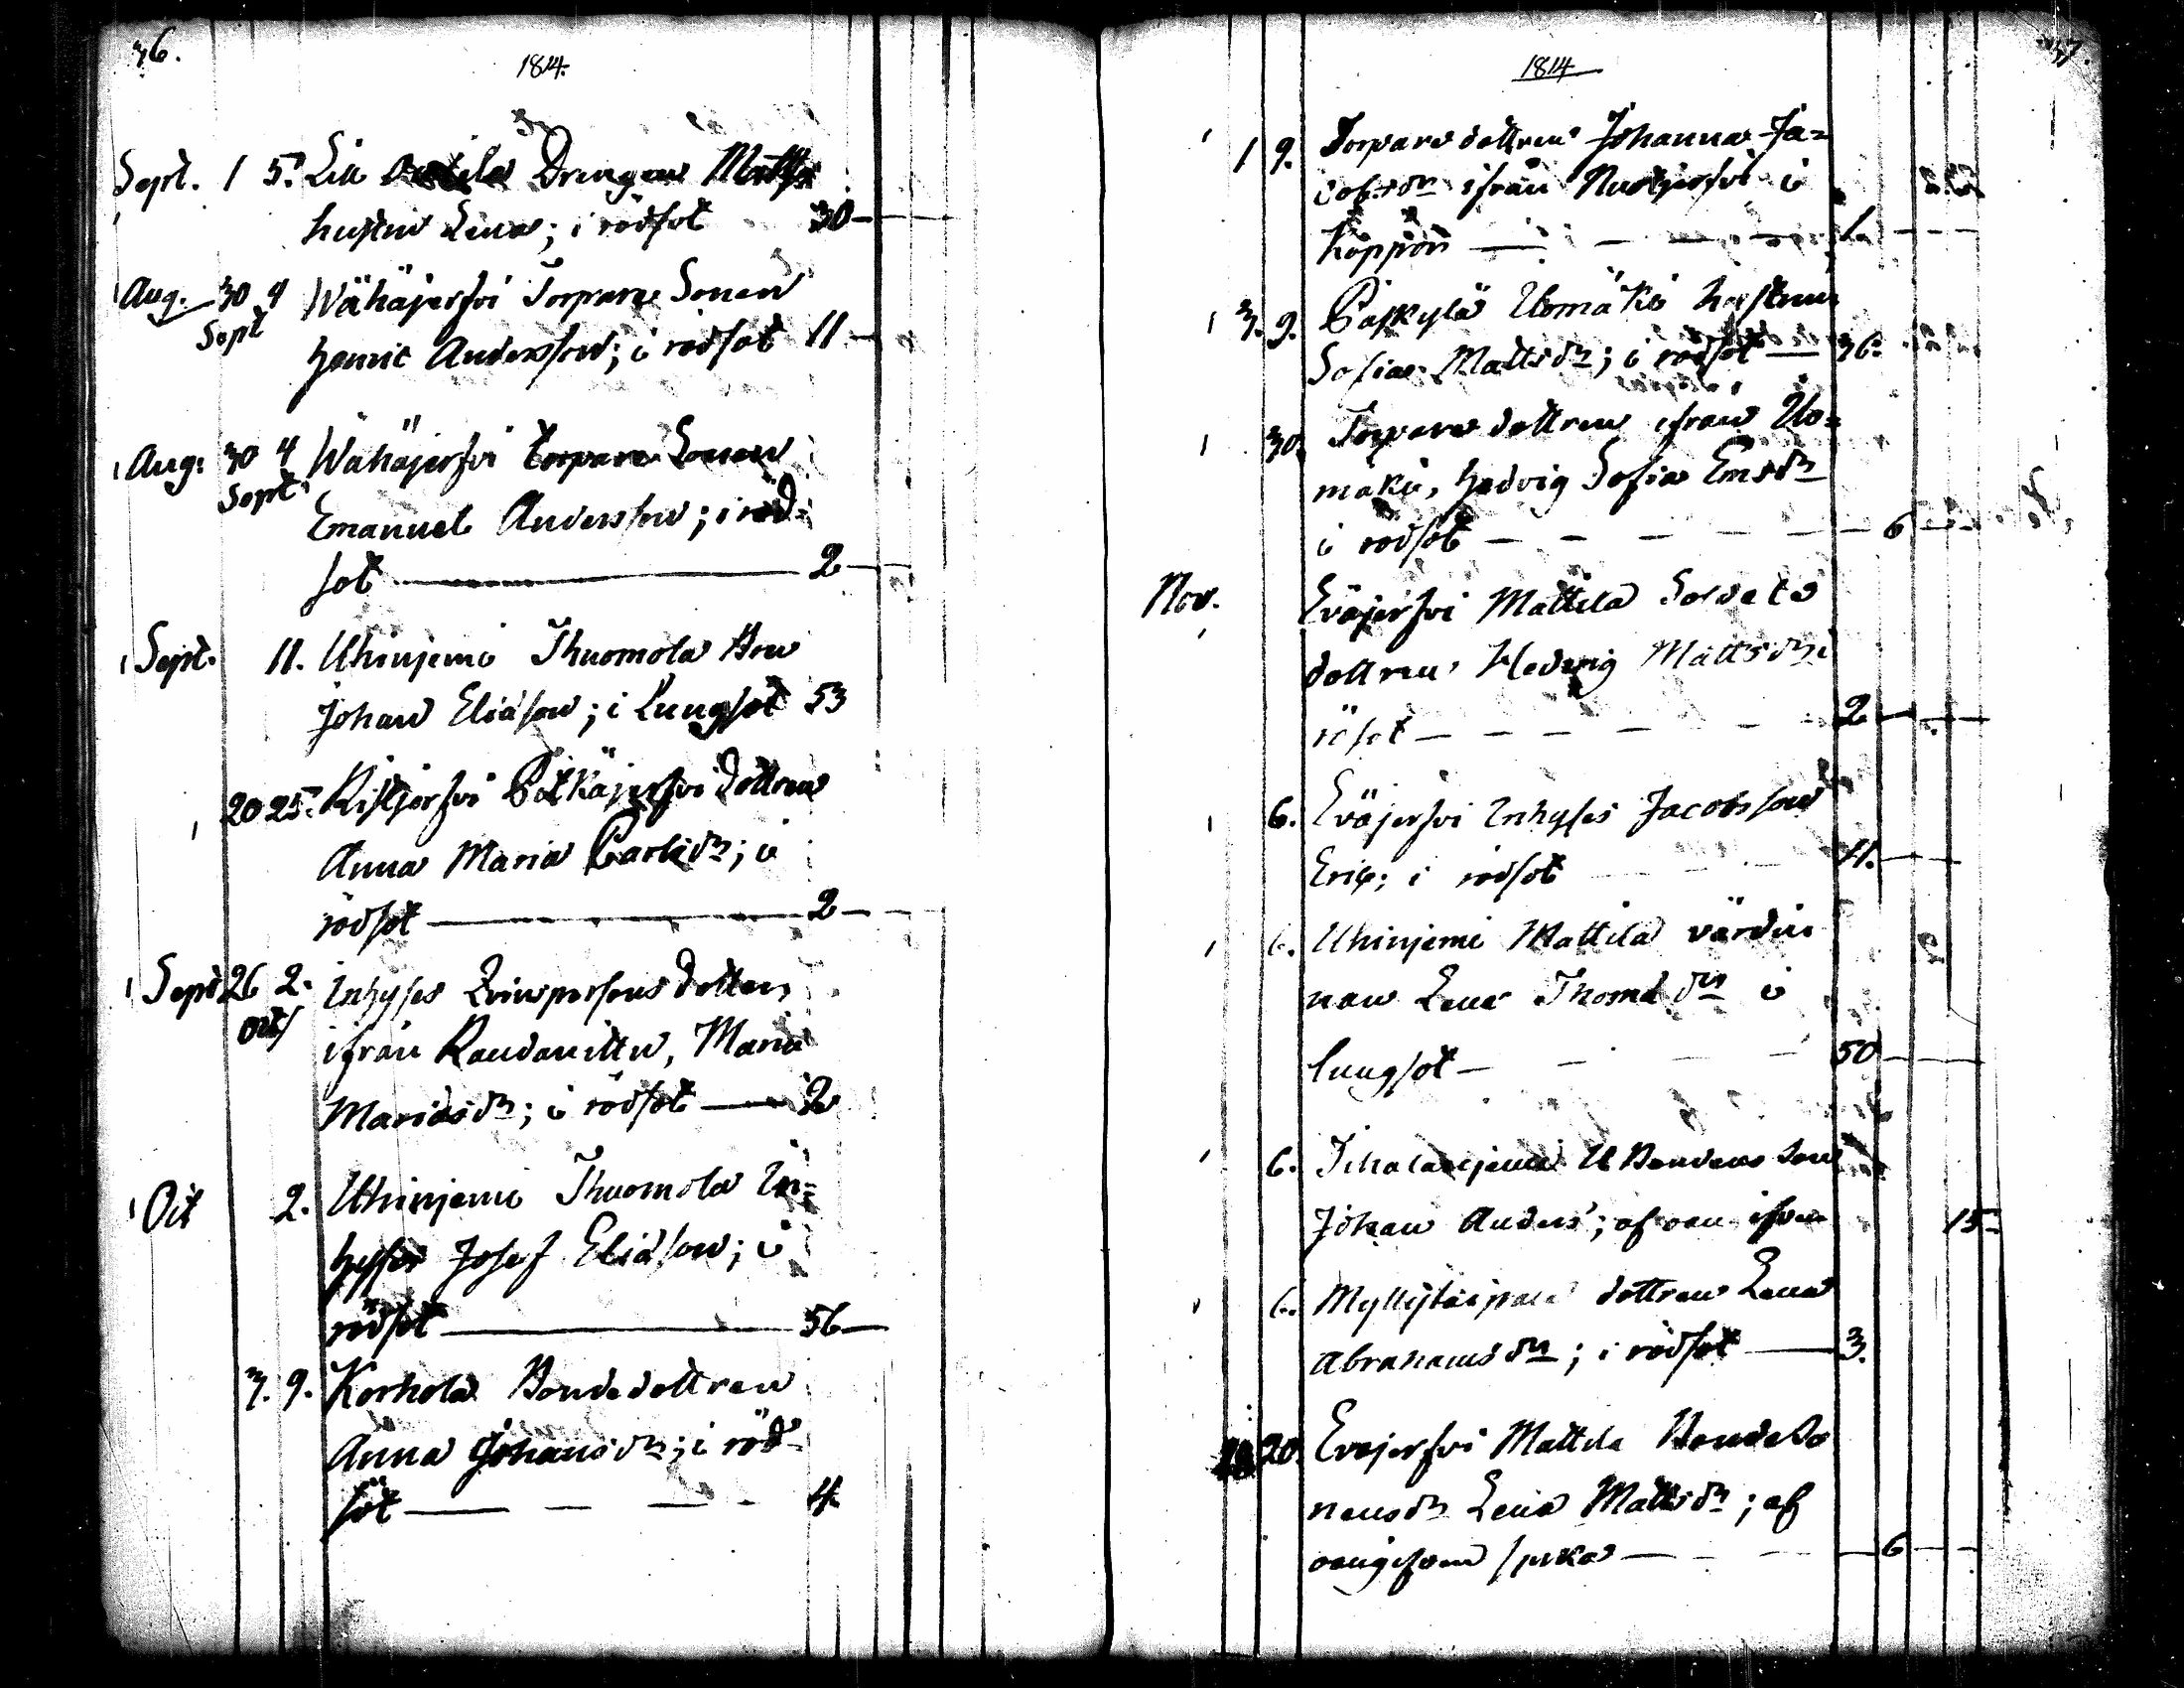 36.
1814.
Sept. 1 5. Lill Drengen Matts
hustru Lena; i rödsot 30 —
Aug. 30 4 Wähäjerfvi Torpare Sonen
Sept
Henric Andersson; i rödsot 11 —
Aug: 30 4 Wähäjerfvi torpare Sonen
Sept
Emanuel Andersson; i röd-
sot — 2 —
Sept. 11. Uhinjemi Thuomola Bon
Johan Eliasson; i Lungsot 53
20 25. Ristjerfvi Pitkäjerfvi dottren
Anna Maria Carlsdr; i
rödsot — 2 —
Sept 26 2. Inhyses Qvinspersons dotter,
Oct
ifrån Raudanittu, Maria
Mariæsdr; i rödsot — 2
Oct 2. Uhinjemi Thuomola In=
hyses Josef Eliasson; i
rödsot — 56 —
3. 9. Korhola Bondedottren
Anna Johansdr; i röd-
sot — 4
37.
1814
1 9. Torpare dottren Johanna Ja=
cobsdr ifrån i
Koppon — 1 —
3. 9. Päskylä Uomäki hustrun
Sofia Mattsdr; i rödsot — 36.
30. Torpare dottren ifrån Uo=
mäki, Hedvig Sofia Emsdr
i rödsot — 6 —
Nov. Eväjerfvi Mattila Soldats
dottren Hedvig Mattsdr i
rösot — 2 —
6. Eväjerfvi Inhyses Jacobsson
Eric; i rödsot 11. —
6. Uhinjemi Mattila värdin
nan Lena Thomæ dr i
lungsot — 50 —
6. Bondens Son
Johan Anders; af 15 —
6. dottren Lena
Abrahamsdr; i rödsot — 3.
20. Evejerfvi Mattila Bonde So
nensdr Lena Mattsdr; af
— 6 —